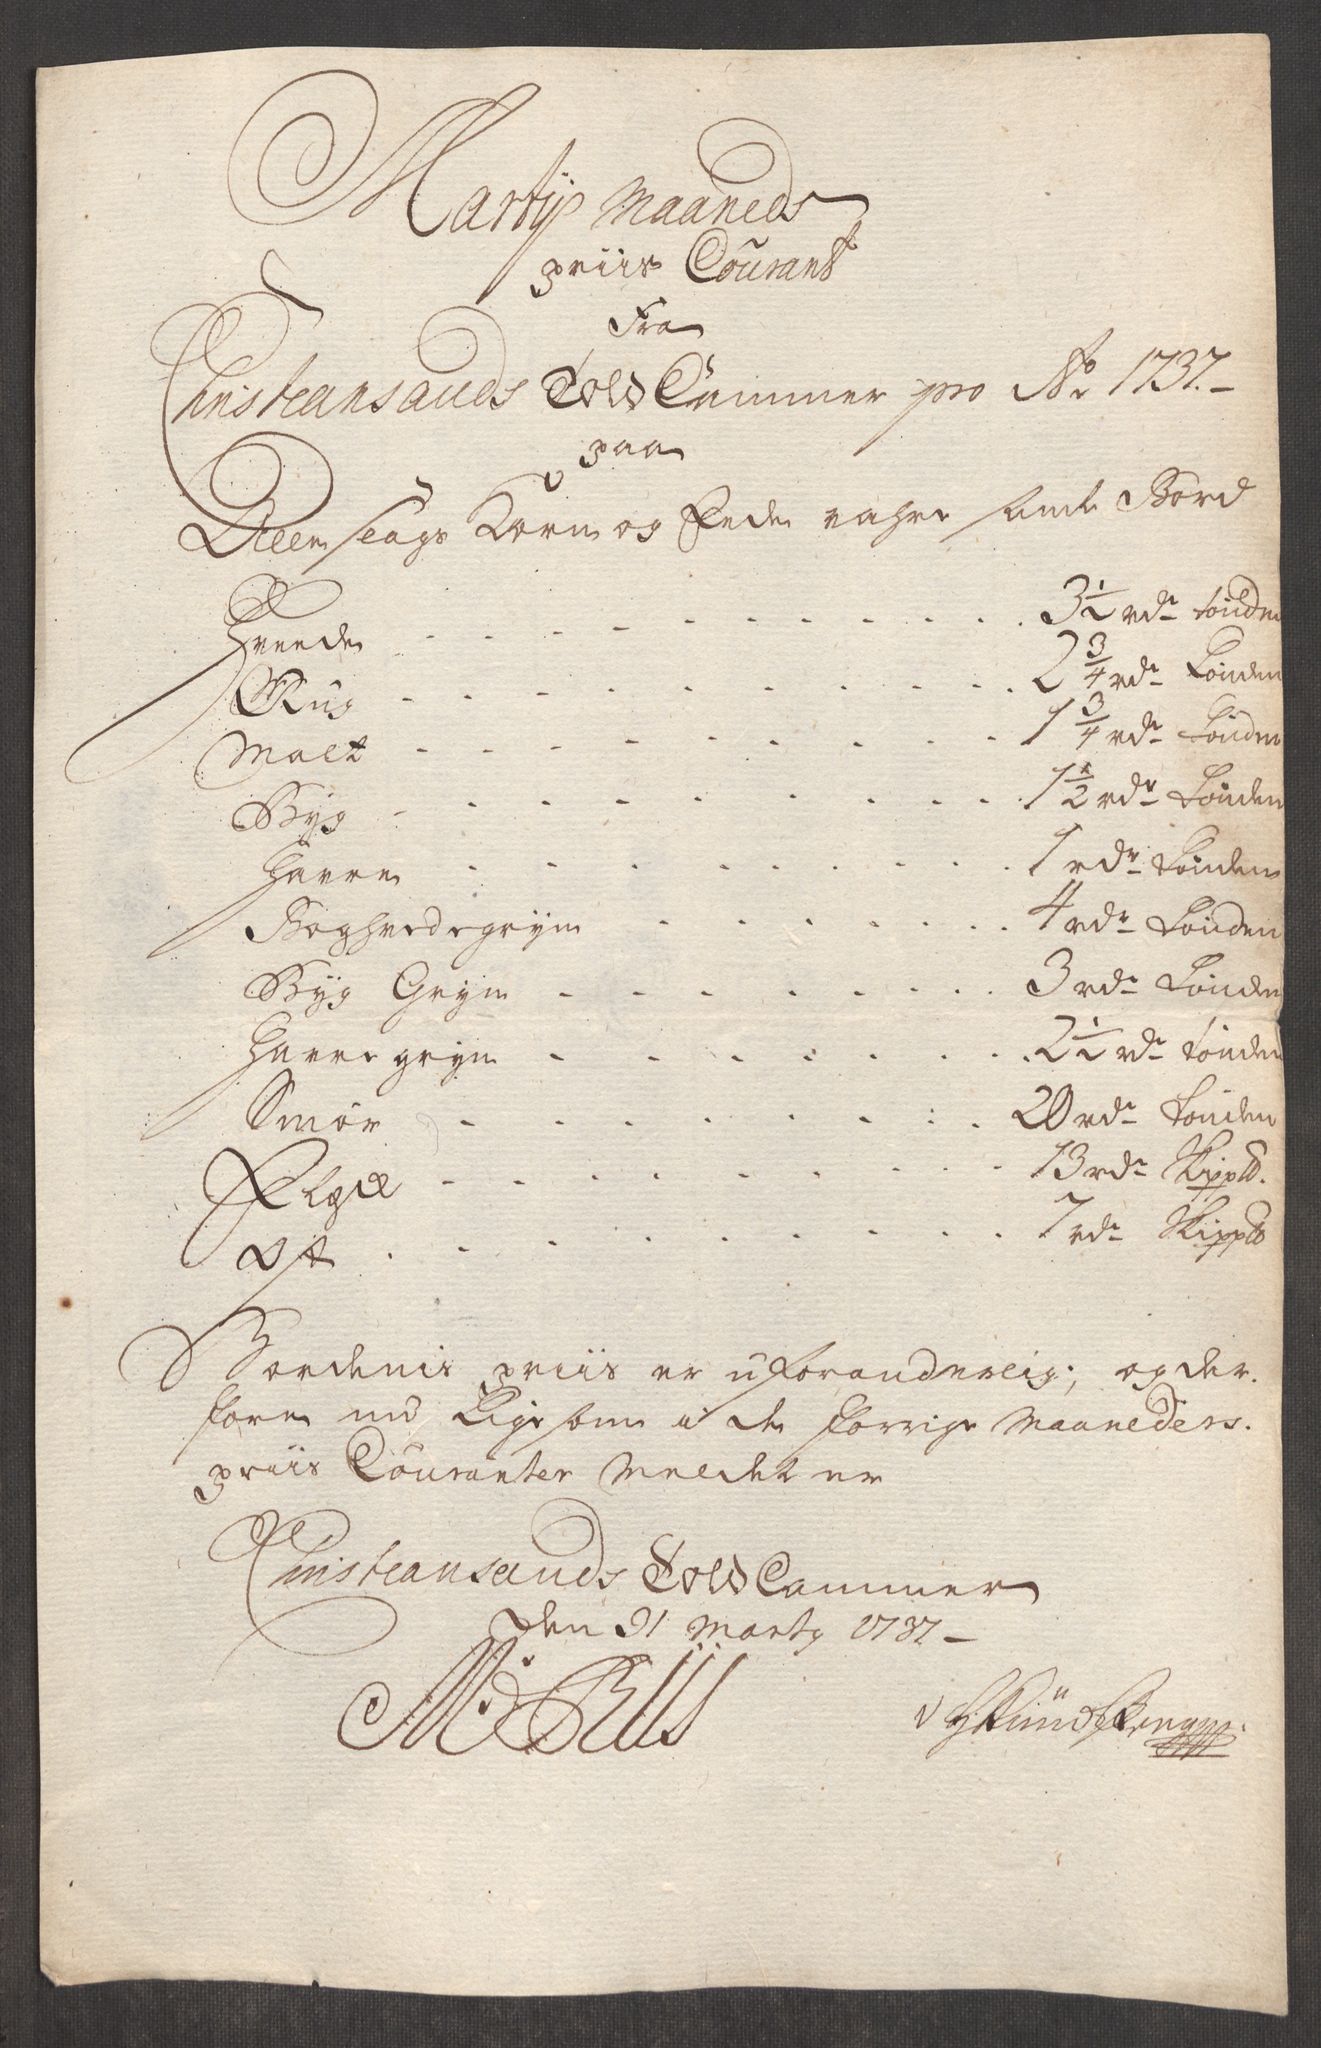 Martÿ Maaneds
priis Courant
Fra
Christiansands Told Cammer pro Ao 1737.
paa
Alle slags Korn og Fede vahre samt Bord
Hveede 3 1/2 rdr tønden
Rug 2 3/4 rdr tønden
Malt 1 3/4 rdr tønden
Byg 1 1/2 rdr tønden
Havre 1 rdr tønden
Boghvedegryn 4 rdr tønden
Byg Gryn 3 rdr tønden
Havre gryn 2 1/2 rdr tønden
Smør 20 rdr tønden
Flesk 13 rdr Skippd.
Ost 7 rdr Skippd
Bordenis priis er uforanderlig; og der-
fore nu Lige som i de forrige Maaneders
priis Couranter Meldet er
Christiansands Told Cammer
Den 31 Marty 1737